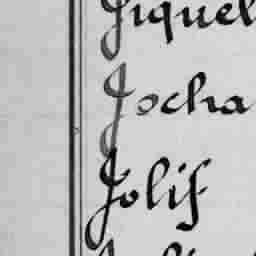 Jiquel
Jocha
Jolif